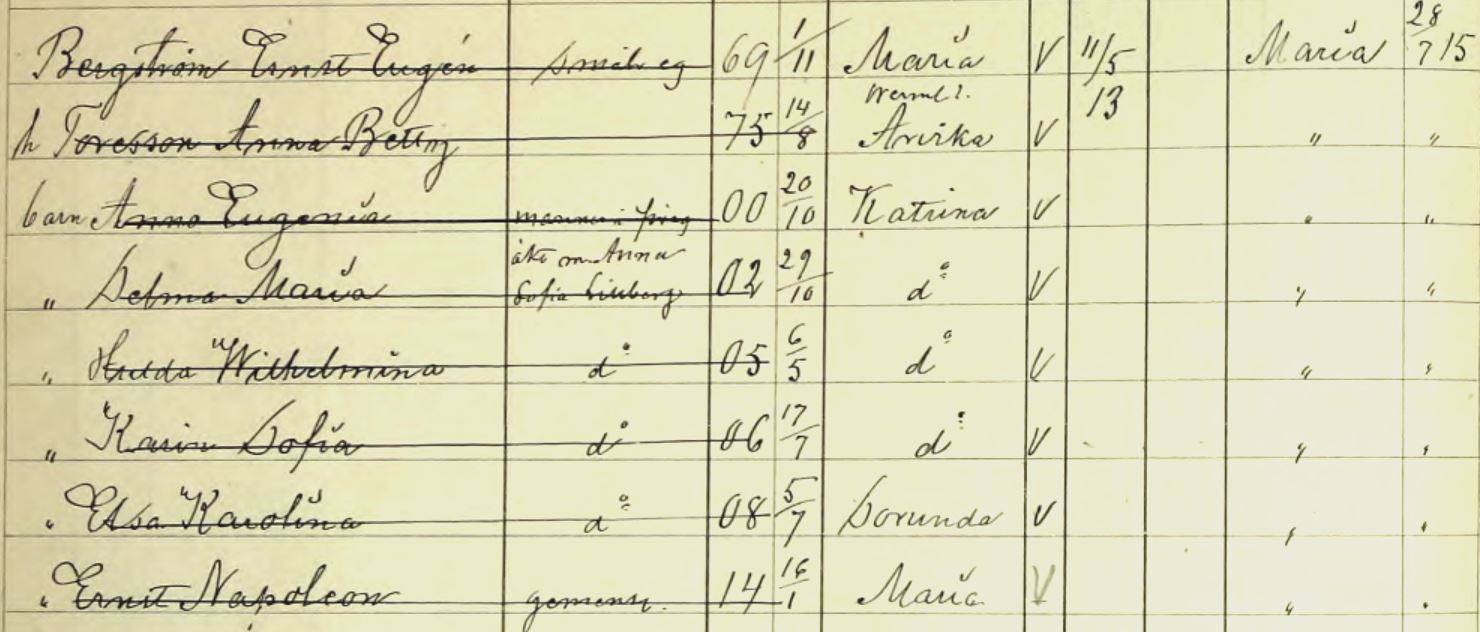 Bergström Ernst Eugén smålig 69 1/11 Maria V 11/5 13 Maria 28/7 15
h Toresson Anna Betty 75 14/8 Werml. Arvika V " "
barn Anna Eugenia mannen i föreg 00 20/10 Katrina V " "
" Selma Maria äkt m. Anna Sofia Lillberg 02 29/10 do V " "
" Hulda Wilhelmina do 05 6/5 do V " "
" Karin Sofia do 06 17/7 do V " "
" Elsa Karolina do 08 5/7 Sorunda V " "
" Ernst Napoleon gemens. 14 16/1 Maria V " "